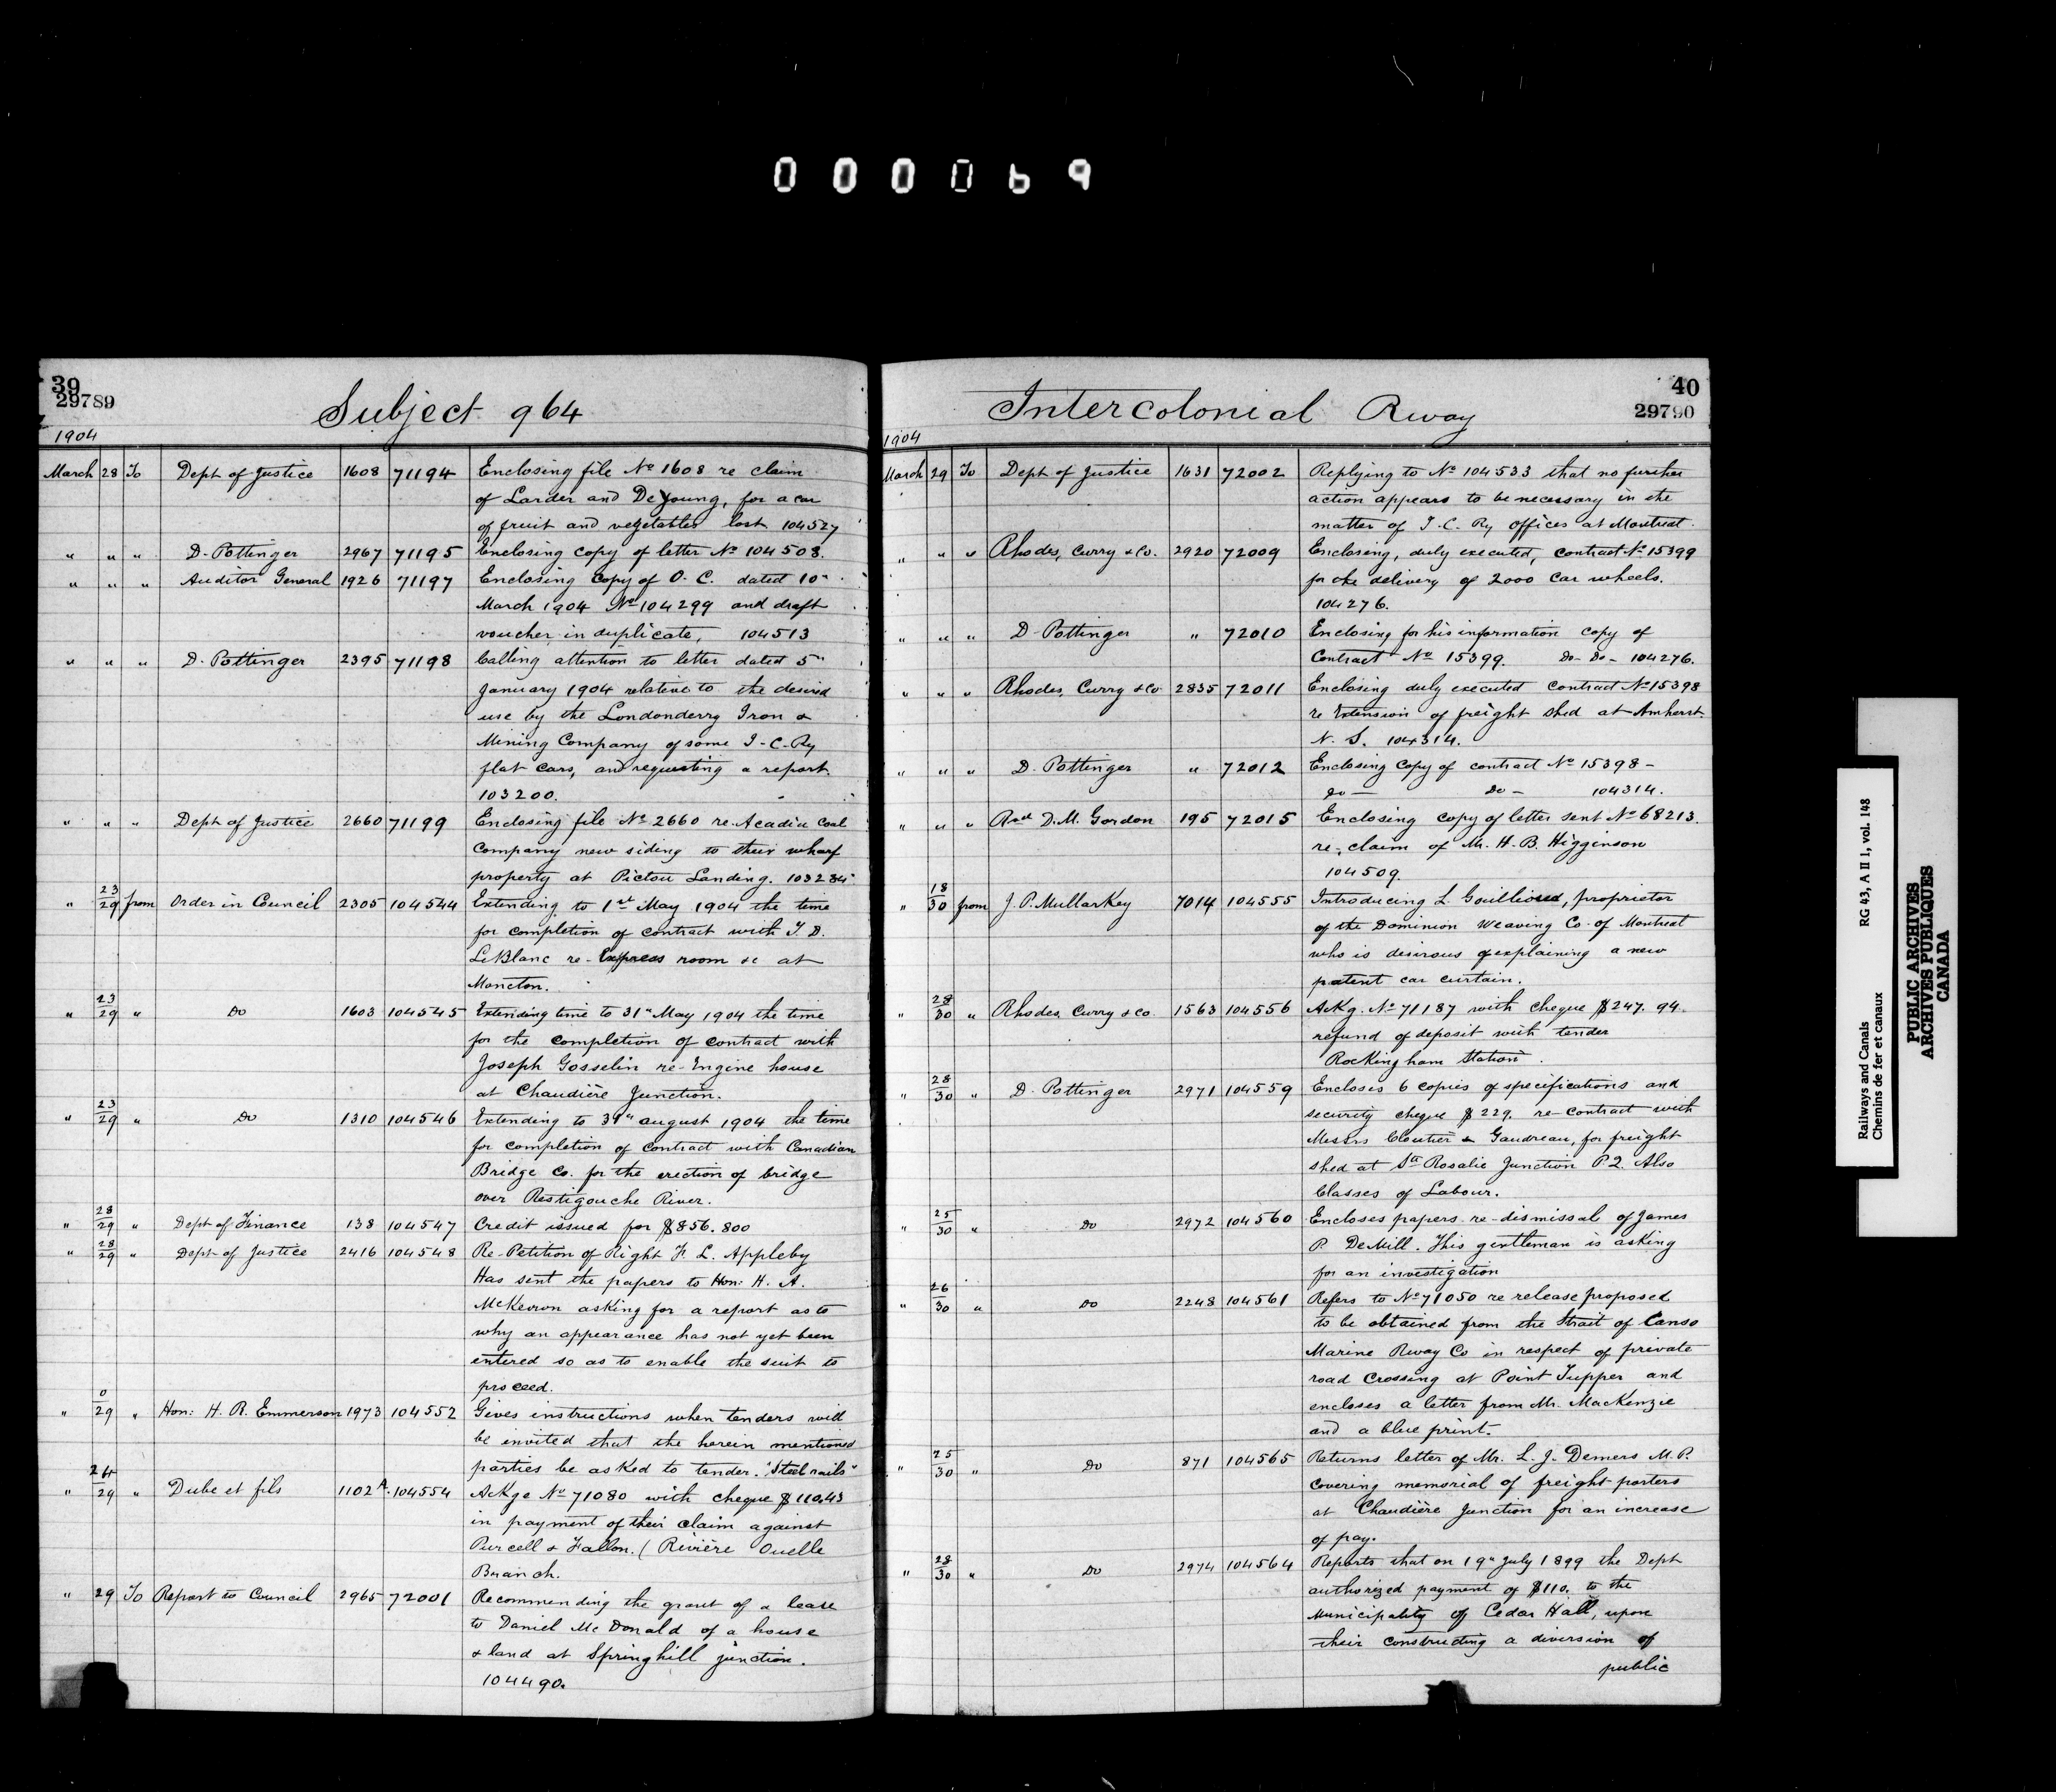 000069
39
29789
Subject 964
1904
March 28 To Dept of Justice 1608 71194 Enclosing file No 1608 re claim
of Larder and DeYoung, for a car
of fruit and vegetables lost 104527
" " " D. Pottinger 2967 71195 Enclosing copy of letter No 104508.
" " " Auditor General 1926 71197 Enclosing copy of O. C. dated 10"
March 1904 No 104299 and draft
voucher in duplicate, 104513
" " " D. Pottinger 2395 71198 Calling attention to letter dated 5"
January 1904 relative to the desired
use by the Londonderry Iron &
Mining Company of some I-C-Ry
flat cars, and requesting a report.
103200.
" " " Dept of Justice 2660 71199 Enclosing file No 2660 re Acadia Coal
Company new siding to their wharf
property at Pictou Landing. 103284
" 23/29 from Order in Council 2305 104544 Extending to 1st May 1904 the time
for completion of contract with T. D.
LeBlanc re-Express room &c at
Moncton.
" 23/29 " Do 1603 104545 Extending time to 31" May 1904 the time
for the completion of contract with
Joseph Gosselin re-Engine house
at Chaudière Junction.
" 23/29 " Do 1310 104546 Extending to 31" august 1904 the time
for completion of contract with Canadian
Bridge Co. for the erection of bridge
over Restigouche River.
" 28/29 " Dept of Finance 138 104547 Credit issued for $856.800
" 28/29 " Dept of Justice 2416 104548 Re-Petition of Right F. L. Appleby
Has sent the papers to Hon: H. A.
McKeown asking for a report as to
why an appearance has not yet been
entered so as to enable the suit to
proceed.
" 0/29 " Hon: H. R. Emmerson 1973 104552 Gives instructions when tenders will
be invited that the herein mentioned
parties be asked to tender. "Steel rails"
" 24/29 " Dube et fils 1102A. 104554 Ackge No 71080 with cheque $110.43
in payment of their claim against
Purcell & Fallon. (Rivière Ouelle
Branch.
" 29 To Report to Council 2965 72001 Recommending the grant of a lease
to Daniel McDonald of a house
& land at Springhill junction.
104490.
40
29790
Intercolonial Rway
1904
March 29 To Dept of Justice 1631 72002 Replying to No 104533 that no further
action appears to be necessary in the
matter of I-C-Ry offices at Montreal.
" " " Rhodes, Curry & Co. 2920 72009 Enclosing, duly executed, contract No 15399
for the delivery of 2000 Car wheels.
104276.
" " " D. Pottinger " 72010 Enclosing for his information copy of
Contract No 15399. Do- Do- 104276.
" " " Rhodes, Curry & Co 2835 72011 Enclosing duly executed contract No 15398
re Extension of freight shed at Amherst.
N. S. 104314.
" " " D. Pottinger " 72012 Enclosing Copy of contract No 15398-
Do- Do- 104314.
" " " Revd D. M. Gordon 195 72015 Enclosing copy of letter sent No 68213.
re-claim of Mr. H. B. Higginson
104509.
" 18/30 from J. P. Mullarkey 7014 104555 Introducing L. , proprietor
of the Dominion Weaving Co. of Montreal
who is desirous of explaining a new
patent car curtain.
" 28/30 " Rhodes Curry & Co. 1563 104556 Ackg. No 71187 with cheque $247.94.
refund of deposit with tender
Rockingham Station.
" 28/30 " D. Pottinger 2971 104559 Encloses 6 copies of specifications and
security cheque $229. re-contract with
Messrs Cloutier & Gaudreau, for freight
shed at Ste Rosalie Junction P.Q. Also
Classes of Labour.
" 25/30 " Do 2972 104560 Encloses papers re-dismissal of James
P. DeMill. This gentleman is asking
for an investigation
" 26/30 " Do 2248 104561 Refers to No 71050 re release proposed
to be obtained from the Strait of Canso
Marine Rway Co in respect of private
road Crossing at Point Tupper and
encloses a letter from Mr. MacKenzie
and a blue print.
" 25/30 " Do 871 104565 Returns letter of Mr. L. J. Demers M. P.
covering memorial of freight porters
at Chaudière Junction for an increase
of pay.
" 28/30 " Do 2974 104564 Reports that on 19" July 1899 the Dept
authorized payment of $110. to the
Municipality of Cedar Hall, upon
their constructing a diversion of
public
Railways and Canals RG 43, A II 1, vol. 148
Chemins de fer et canaux
PUBLIC ARCHIVES
ARCHIVES PUBLIQUES
CANADA